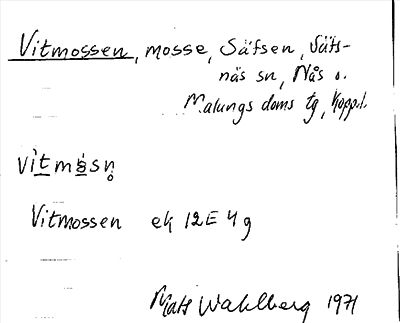 Vitmossen, mosse, Säfsen, Säfs-
näs sn, Nås o.
Malungs doms tg, Kopp.l.
vi̊tmåsn̥
Vitmossen ek 12E 4g
Mats Wahlberg 1971